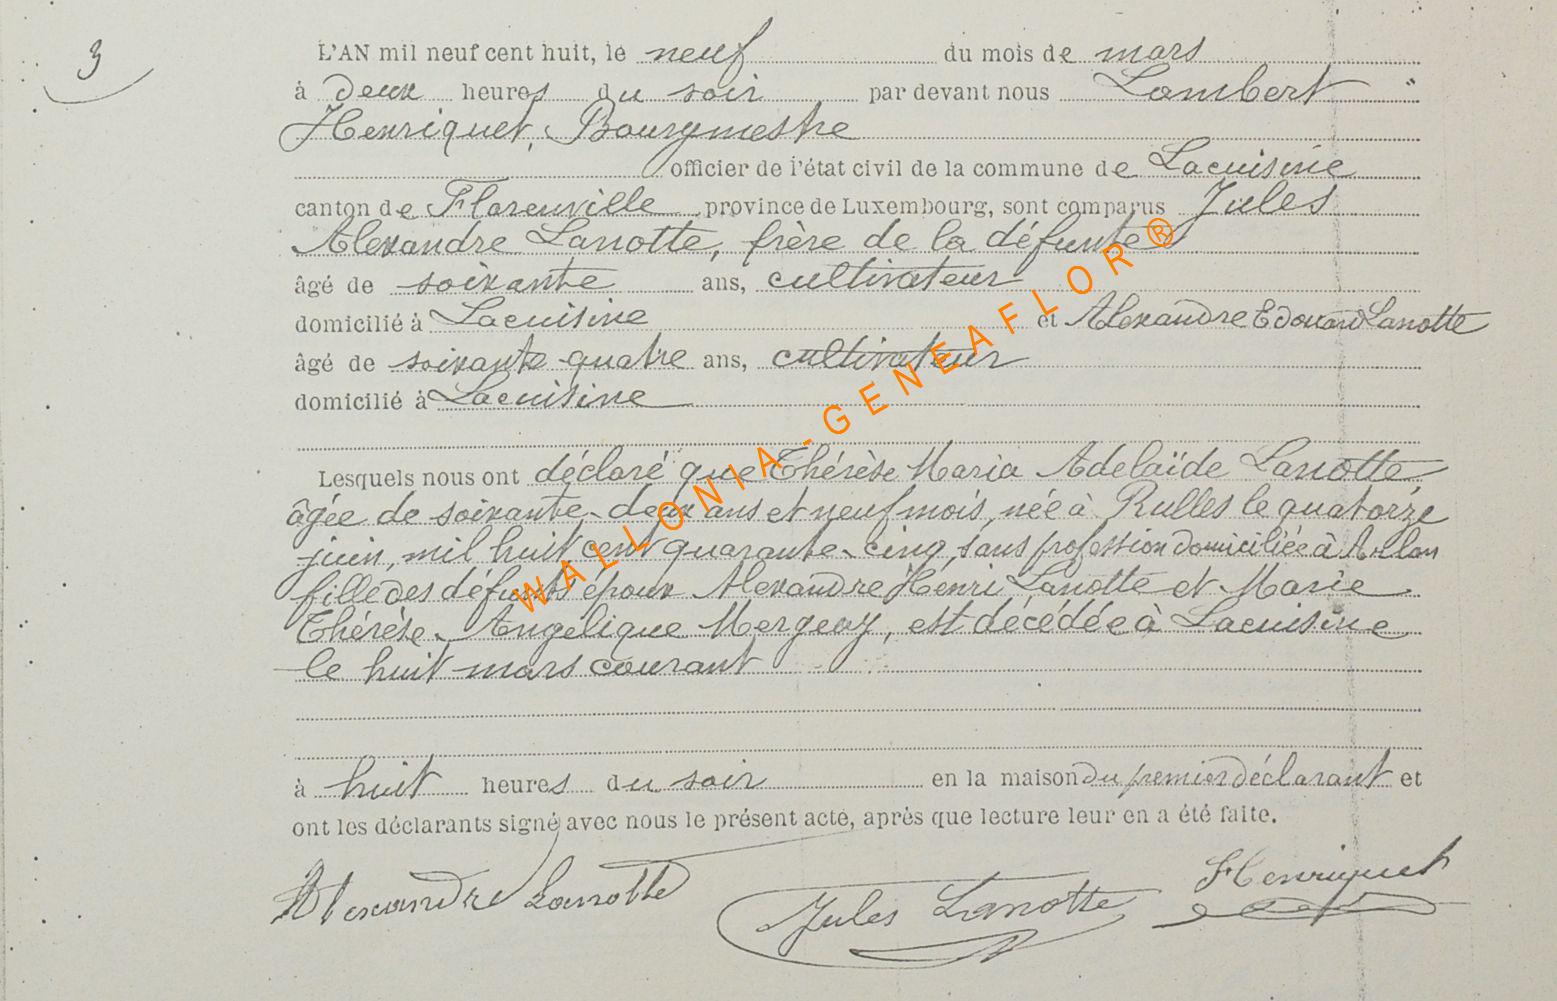 3
L'AN mil neuf cent huit, le neuf du mois de mars
à deux heures du soir par devant nous Lambert
Henriquet, Bourgmestre
officier de l'état civil de la commune de Lacuisine
canton de Florenville, province de Luxembourg, sont comparus Jules
Alexandre Lanotte, frère de la défunte
âgé de soixante ans, cultivateur
domicilié à Lacuisine et Alexandre Edouard Lanotte
âgé de soixante quatre ans, cultivateur
domicilié à Lacuisine
Lesquels nous ont déclaré que Thérèse Maria Adelaïde Lanotte,
âgée de soixante-deux ans et neuf mois, née à Rulles le quatorze
juin, mil huit cent quarante-cinq, sans profession domiciliée à Arlon
fille des défunts époux Alexandre Henri Lanotte et Marie
Thérèse-Angélique Mergeay, est décédée à Lacuisine
le huit mars courant
à huit heures du soir en la maison du premier déclarant et
ont les déclarants signé avec nous le présent acte, après que lecture leur en a été faite.
Alexandre Lanotte Jules Lanotte Henriquet
WALLONIA-GENEAFLOR®